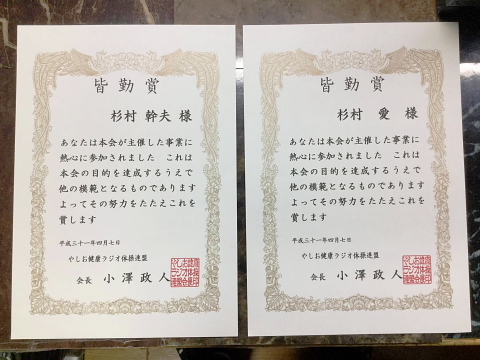 皆勤賞
杉村 幹夫 様
あなたは本会が主催した事業に
熱心に参加されました これは
本会の目的を達成するうえで
他の模範となるものであります
よってその努力をたたえこれを
賞します
平成三十一年四月七日
やしお健康ラジオ体操連盟
会長 小澤政人
皆勤賞
杉村 愛 様
あなたは本会が主催した事業に
熱心に参加されました これは
本会の目的を達成するうえで
他の模範となるものであります
よってその努力をたたえこれを
賞します
平成三十一年四月七日
やしお健康ラジオ体操連盟
会長 小澤政人